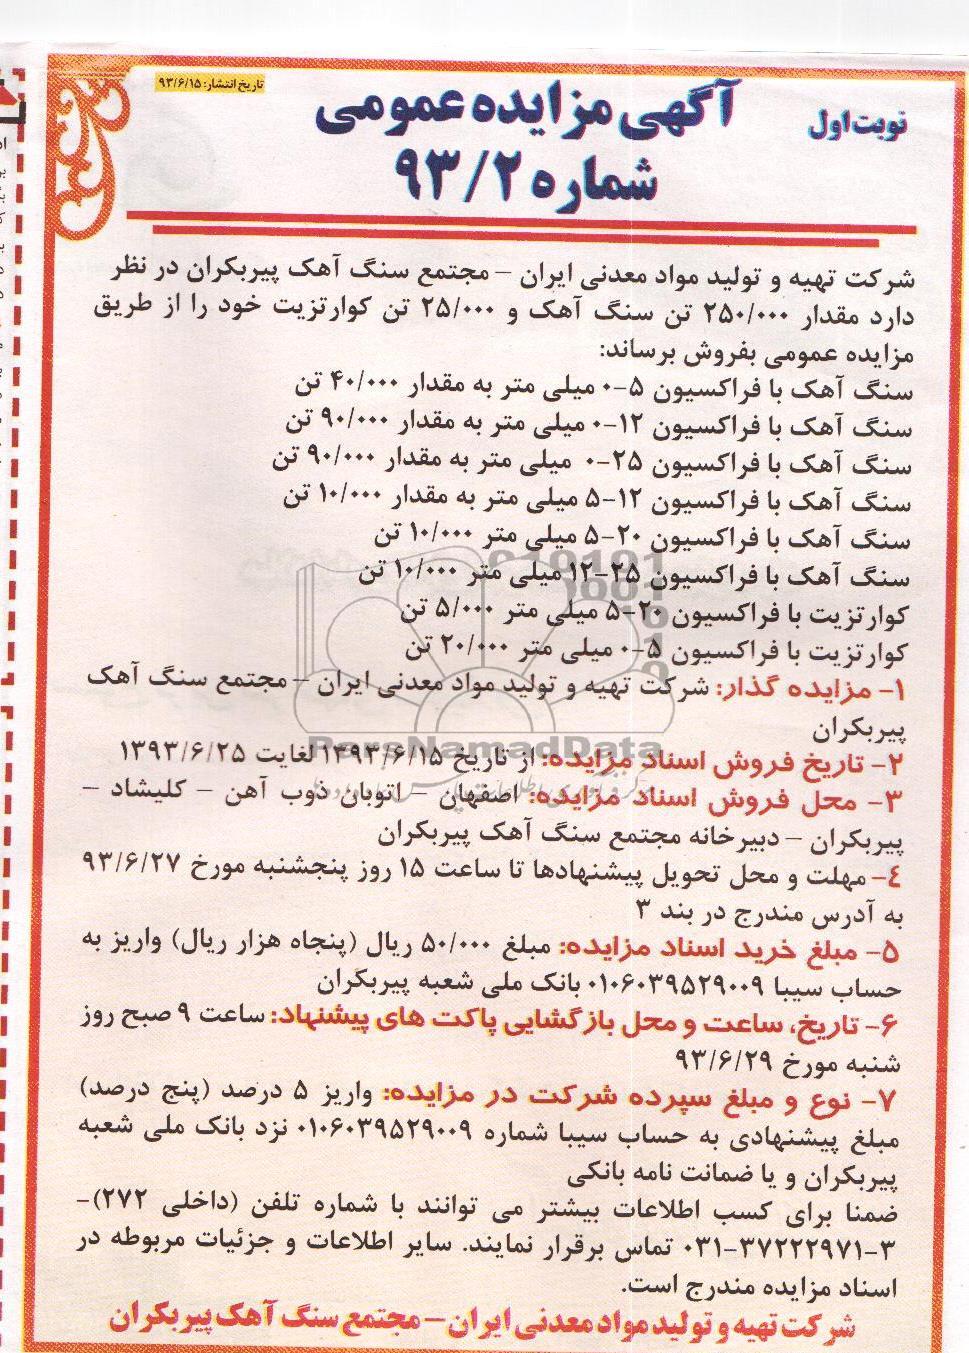 تاریخ انتشار: ۹۳/۶/۱۵
نوبت اول
آگهی مزایده عمومی
شماره ۹۳/۲
شرکت تهیه و تولید مواد معدنی ایران – مجتمع سنگ آهک پیربکران در نظر
دارد مقدار ۲۵۰/۰۰۰ تن سنگ آهک و ۲۵/۰۰۰ تن کوارتزیت خود را از طریق
مزایده عمومی بفروش برساند:
سنگ آهک با فراکسیون ۵-۰ میلی متر به مقدار ۴۰/۰۰۰ تن
سنگ آهک با فراکسیون ۱۲-۰ میلی متر به مقدار ۹۰/۰۰۰ تن
سنگ آهک با فراکسیون ۲۵-۰ میلی متر به مقدار ۹۰/۰۰۰ تن
سنگ آهک با فراکسیون ۱۲-۵ میلی متر به مقدار ۱۰/۰۰۰ تن
سنگ آهک با فراکسیون ۲۰-۵ میلی متر ۱۰/۰۰۰ تن
سنگ آهک با فراکسیون ۲۵-۱۲ میلی متر ۱۰/۰۰۰ تن
کوارتزیت با فراکسیون ۲۰-۵ میلی متر ۵/۰۰۰ تن
کوارتزیت با فراکسیون ۵-۰ میلی متر ۲۰/۰۰۰ تن
۱- مزایده گذار: شرکت تهیه و تولید مواد معدنی ایران – مجتمع سنگ آهک
پیربکران
ParsNamadData
۲- تاریخ فروش اسناد مزایده: از تاریخ ۱۳۹۳/۶/۱۵ لغایت ۱۳۹۳/۶/۲۵
۳- محل فروش اسناد مزایده: اصفهان – اتوبان ذوب آهن – کلیشاد –
پیربکران – دبیرخانه مجتمع سنگ آهک پیربکران
۴- مهلت و محل تحویل پیشنهادها تا ساعت ۱۵ روز پنجشنبه مورخ ۹۳/۶/۲۷
به آدرس مندرج در بند ۳
۵- مبلغ خرید اسناد مزایده: مبلغ ۵۰/۰۰۰ ریال (پنجاه هزار ریال) واریز به
حساب سیبا ۰۱۰۶۰۳۹۵۲۹۰۰۹ بانک ملی شعبه پیربکران
۶- تاریخ، ساعت و محل بازگشایی پاکت های پیشنهاد: ساعت ۹ صبح روز
شنبه مورخ ۹۳/۶/۲۹
۷- نوع و مبلغ سپرده شرکت در مزایده: واریز ۵ درصد (پنج درصد)
مبلغ پیشنهادی به حساب سیبا شماره ۰۱۰۶۰۳۹۵۲۹۰۰۹ نزد بانک ملی شعبه
پیربکران و یا ضمانت نامه بانکی
ضمنا برای کسب اطلاعات بیشتر می توانند با شماره تلفن (داخلی ۲۷۲)-
۰۳۱-۳۷۲۲۲۹۷۱-۳ تماس برقرار نمایند. سایر اطلاعات و جزئیات مربوطه در
اسناد مزایده مندرج است.
شرکت تهیه و تولید مواد معدنی ایران – مجتمع سنگ آهک پیربکران